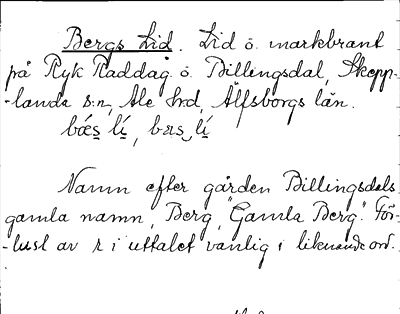 Bergs Lid. Lid o. markbrant
på Ryk Raddag ö. Billingsdal, Skepp-
-landa s:n, Ale hrd, Älfsborgs län.
bǽs̱ lí̱, bæs lí̱
Namn efter gården Billingsdals
gamla namn, Berg, "Gamla Berg". För-
-lust av r i uttalet vanlig i liknande ord.